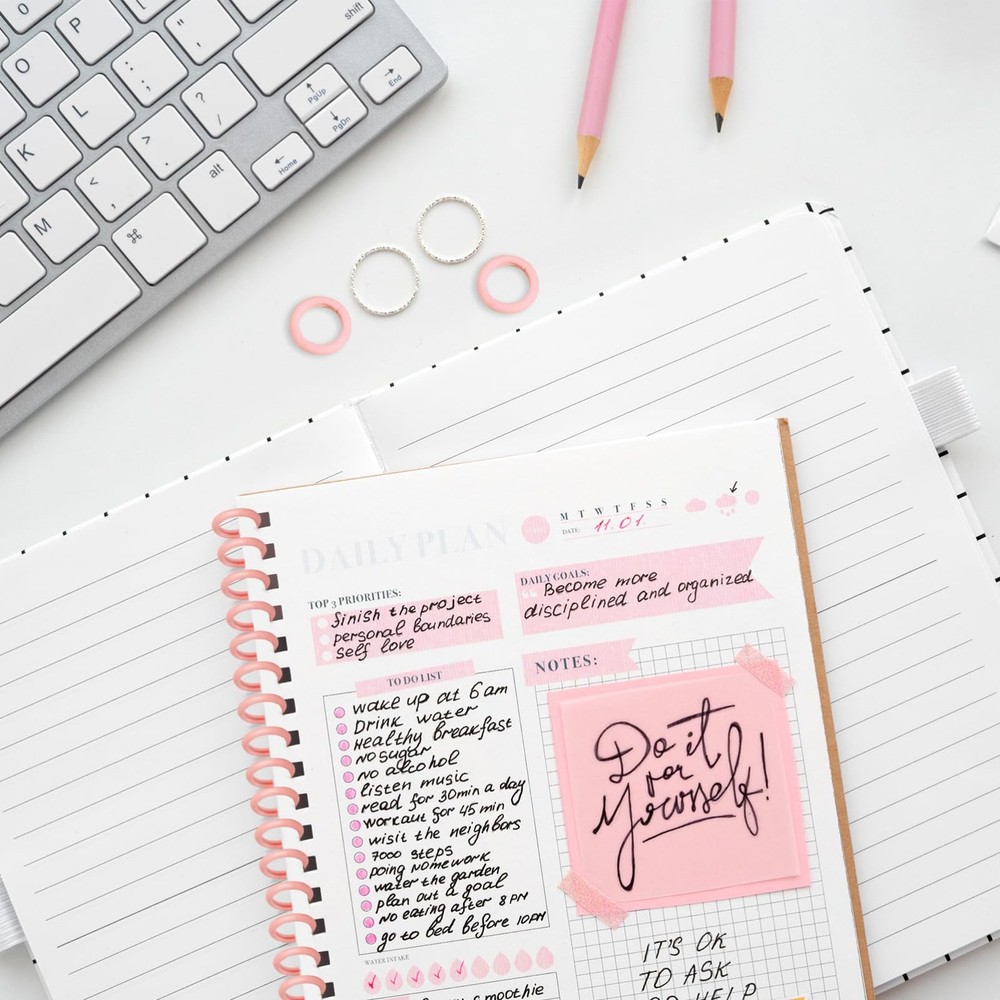 shift
P
"
'
End
O
:
;
PgUp
L
?
/
PgDn
K
>
.
Home
<
,
alt
M
⌘
DAILY PLAN
M T W T F S S
DATE: 11.01.
TOP 3 PRIORITIES:
finish the project
personal boundaries
self love
DAILY GOALS:
Become more
disciplined and organized
TO DO LIST
wake up at 6 am
Drink water
Healthy breakfast
No sugar
No alcohol
listen music
read for 30min a day
workaut for 45 min
wisit the neighbors
7000 steps
Doing Homework
water the garden
plan out a goal
No eating after 8 PM
go to bed before 10PM
WATER INTAKE
smoothie
NOTES:
Do it
for
Yourself!
IT'S OK
TO ASK
HELP